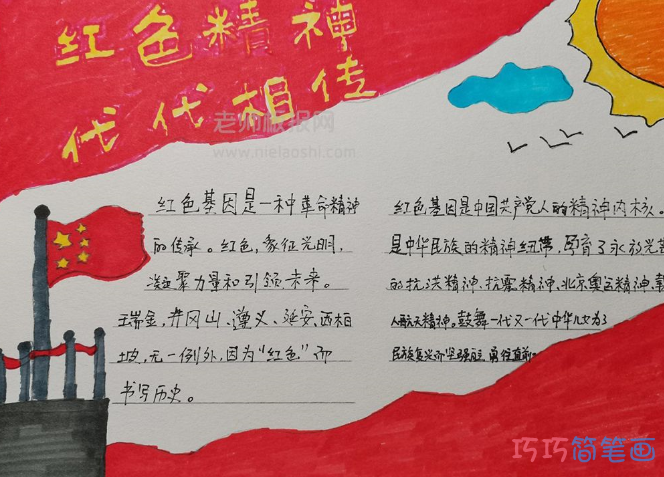 红色精神
代代相传
老师板报网
www.nielaoshi.com
红色基因是一种革命精神
的传承。红色,象征光明,
凝聚力量和引领未来。
瑞金,井冈山、遵义、延安、西柏
坡,无一例外,因为“红色”而
书写历史。
红色基因是中国共产党人的精神内核。
是中华民族的精神纽带,孕育了永放光芒
的抗洪精神、抗震精神、北京奥运精神、载
人航天精神。鼓舞一代又一代中华儿女为了
民族复兴而坚强屹立 勇往直前。
巧巧简笔画